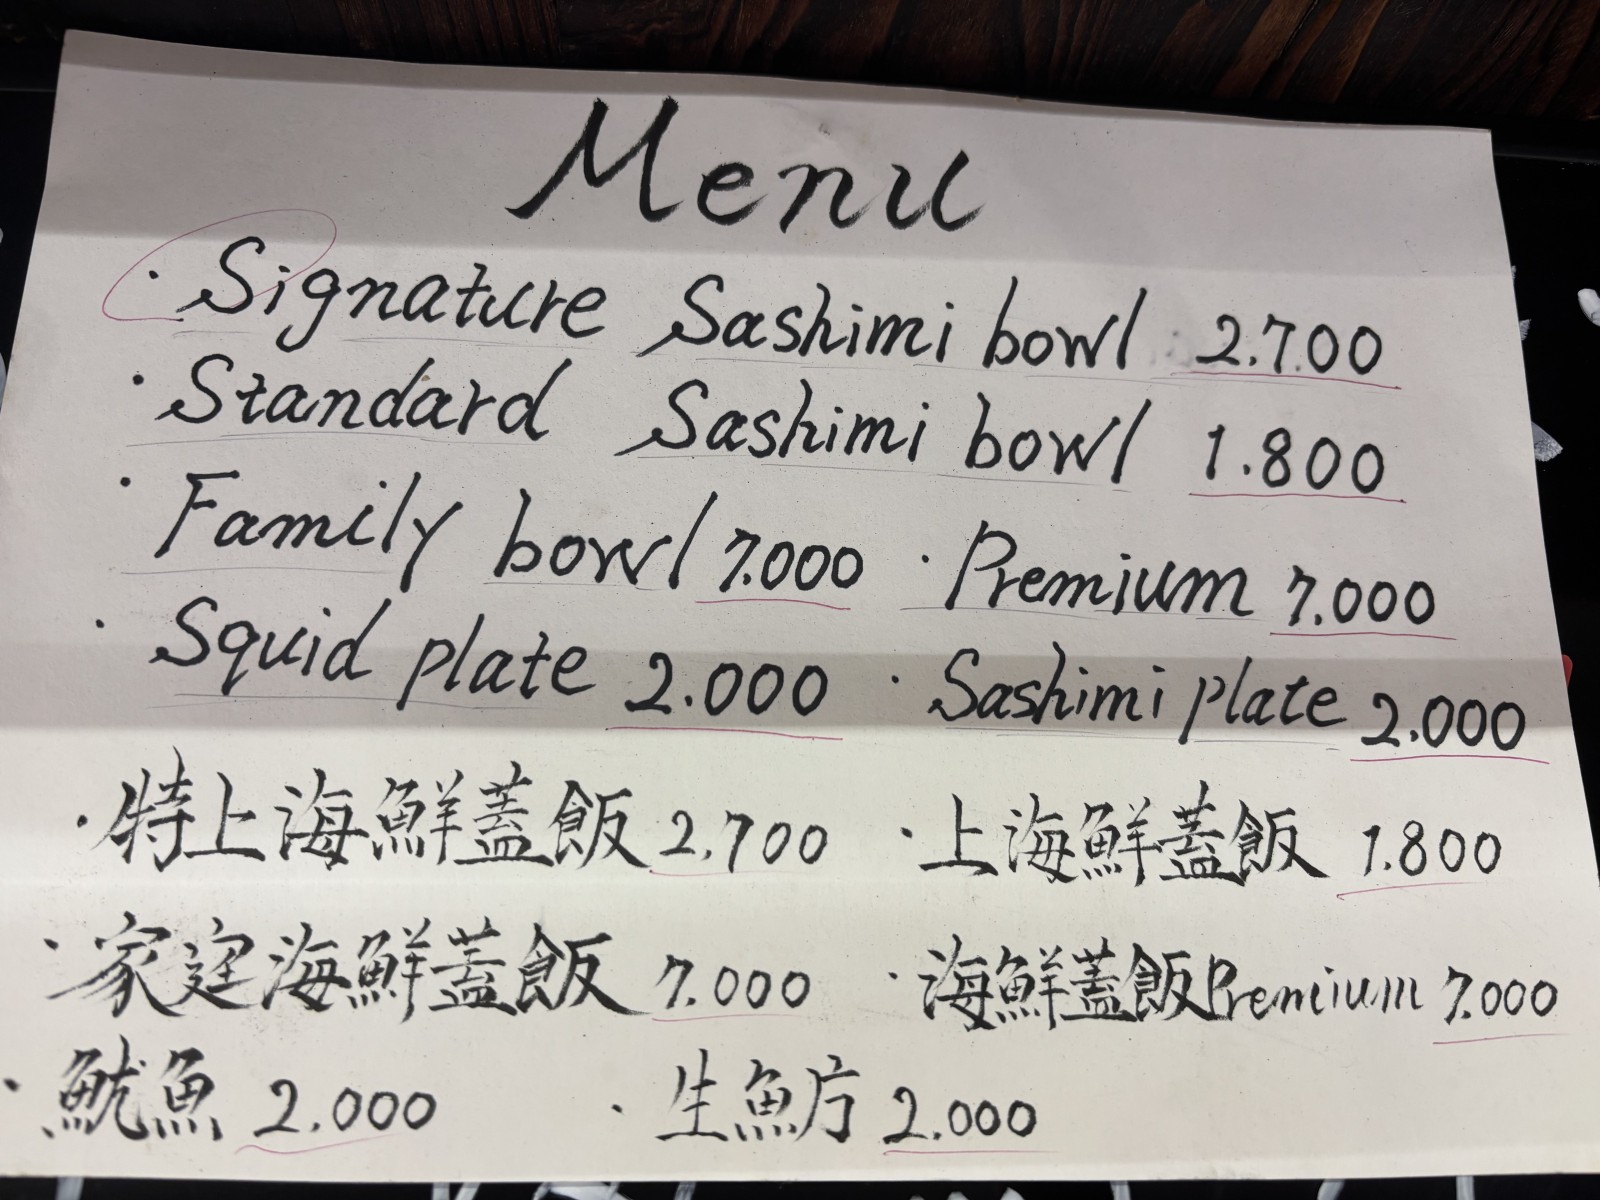 Menu
· Signature Sashimi bowl 2.700
· Standard Sashimi bowl 1.800
· Family bowl 7.000 · Premium 7.000
· Squid plate 2.000 · Sashimi plate 2.000
· 特上海鮮蓋飯 2.700 · 上海鮮蓋飯 1.800
· 家庭海鮮蓋飯 7.000 · 海鮮蓋飯Premium 7.000
· 魷魚 2.000 · 生魚片 2.000